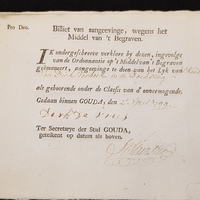 Pro Deo.
Billet van aangeevinge, wegens het
Middel van 't Begraven.
IK ondergeschreeve verklare by dezen, ingevolge
van de Ordonnantie op 't Middel van 't Begraven
geëmaneert, aangeevinge te doen van het Lyk van
als gehoorende onder de Classis van d'onvermogende.
Gedaan binnen GOUDA, den
Dirk de
Ter Secretarye der Stad GOUDA,
geteekent op datum als boven.